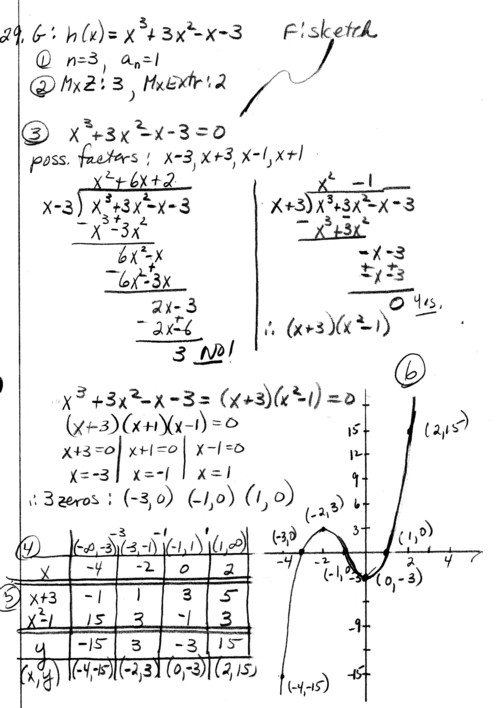 29. G: h(x) = x³+3x²-x-3 F: sketch
① n=3, aₙ=1
② MxZ: 3, MxExtr: 2
③ x³+3x²-x-3=0
poss. factors: x-3, x+3, x-1, x+1
x²+6x+2
x-3)x³+3x²-x-3
-x³-3x²
+
6x²-x
-6x²-3x
+
2x-3
-2x-6
+
3 No!
x² -1
x+3)x³+3x²-x-3
-x³+3x²
-
-x-3
-x-3
+ +
0 Yes.
∴ (x+3)(x²-1)
x³+3x²-x-3=(x+3)(x²-1)=0
(x+3)(x+1)(x-1)=0
x+3=0 | x+1=0 | x-1=0
x=-3 | x=-1 | x=1
∴ 3 zeros: (-3,0) (-1,0) (1,0)
④ (-∞,-3) -3 (-3,-1) -1 (-1,1) 1 (1,∞)
x -4 -2 0 2
⑤ x+3 -1 1 3 5
x²-1 15 3 -1 3
y -15 3 -3 15
(x,y) (-4,-15) (-2,3) (0,-3) (2,15)
⑥
15 (2,15)
12
9
6
(-2,3) 3
(-3,0) (1,0)
-4 -2 2 4
(-1,0) -3 (0,-3)
-9
-15
(-4,-15)